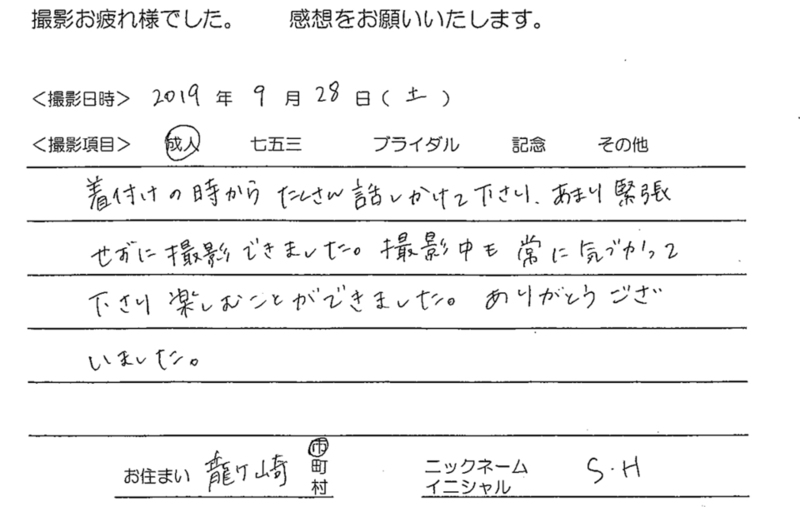 撮影お疲れ様でした。　感想をお願いいたします。
＜撮影日時＞ 2019 年 9 月 28 日（ 土 ）
＜撮影項目＞ 成人　七五三　ブライダル　記念　その他
着付けの時から たくさん 話しかけて下さり、あまり緊張
せずに撮影できました。撮影中も 常に気づかって
下さり 楽しむことができました。 ありがとうござ
いました。
お住まい 龍ケ崎 市 町 村　ニックネーム イニシャル S・H